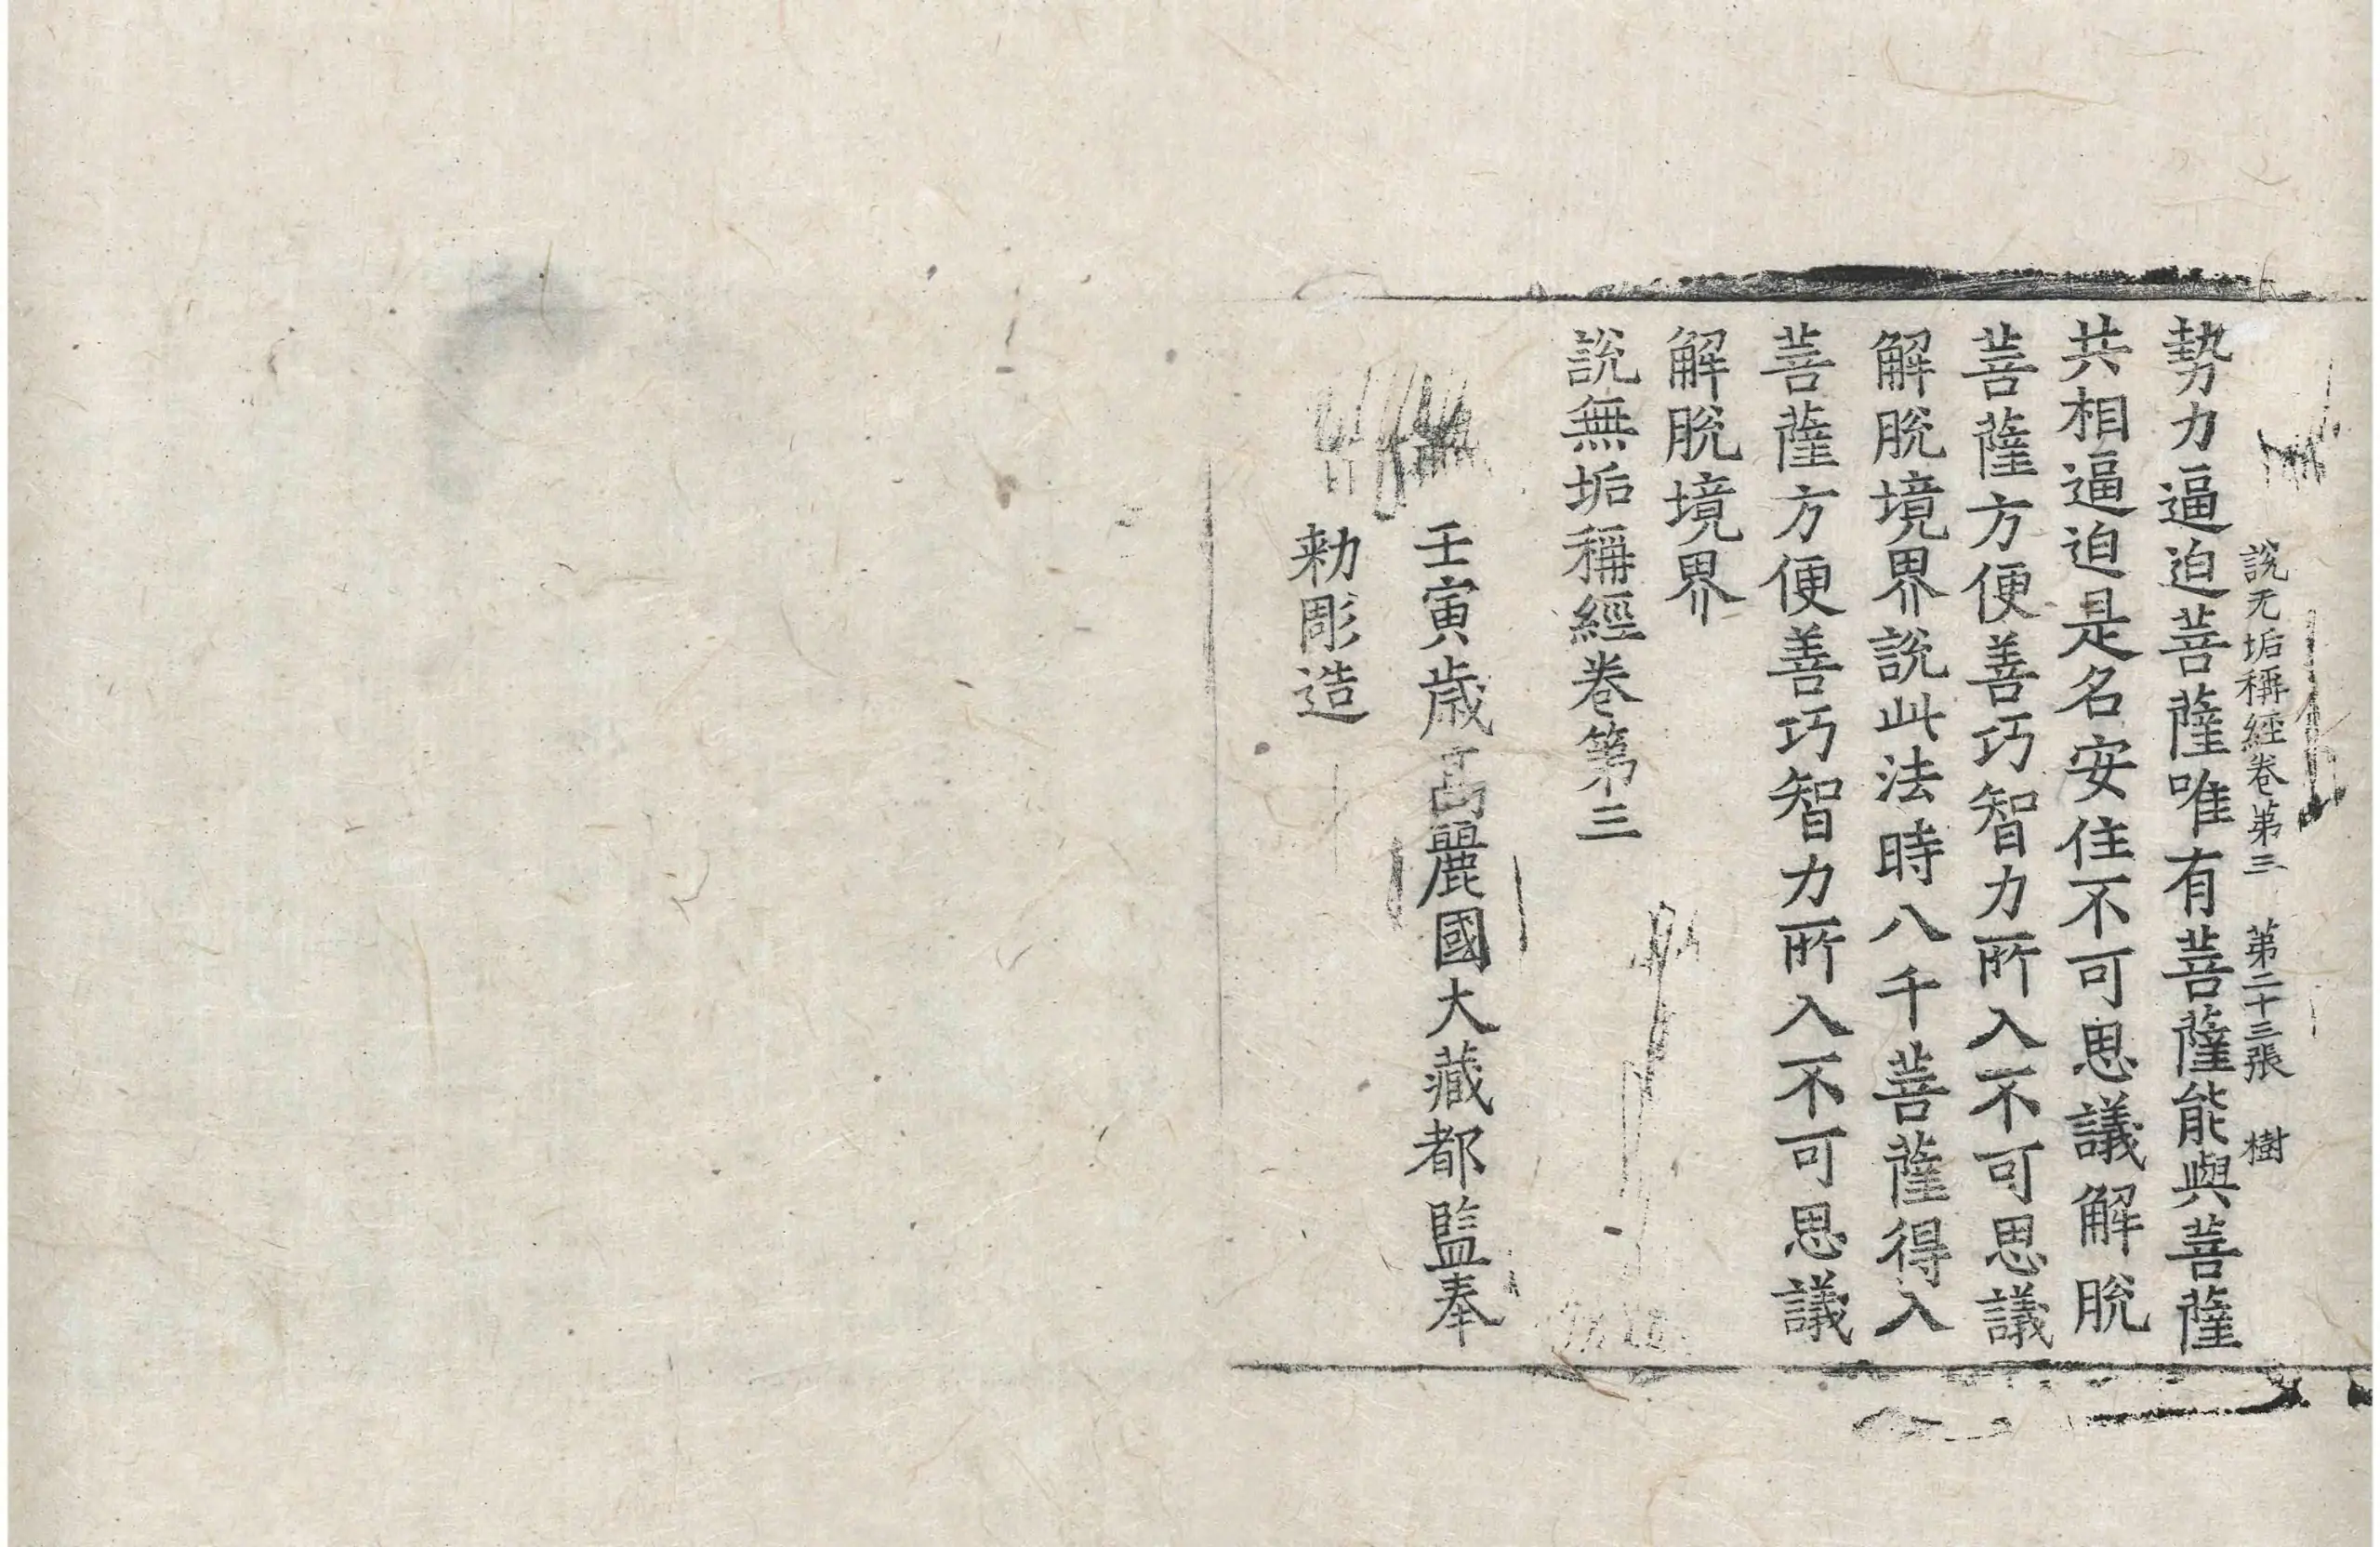 說无垢稱經卷第三 第二十三張 樹
勢力逼迫菩薩唯有菩薩能與菩薩
共相逼迫是名安住不可思議解脫
菩薩方便善巧智力所入不可思議
解脫境界說此法時八千菩薩得入
菩薩方便善巧智力所入不可思議
解脫境界
說無垢稱經卷第三
壬寅歲高麗國大藏都監奉
勅彫造